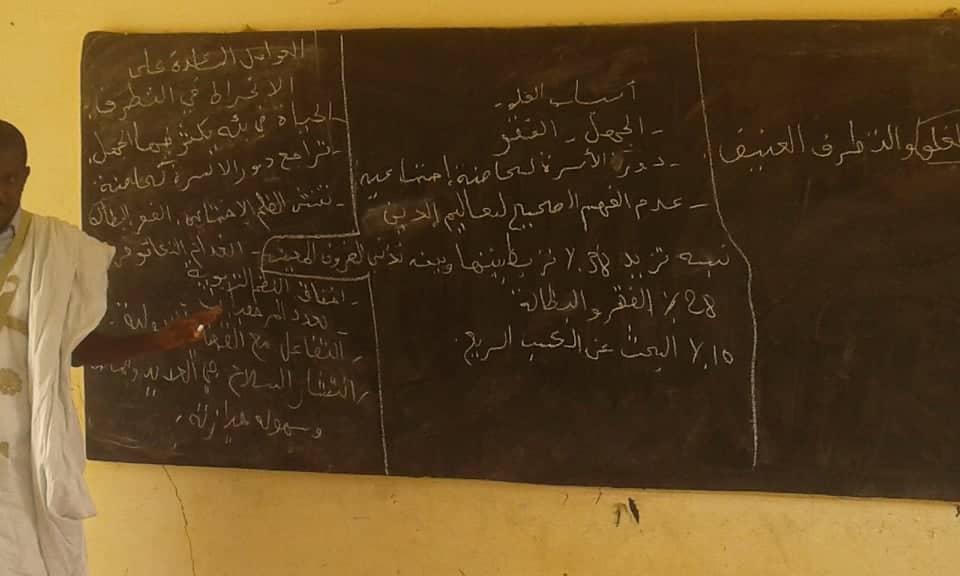 الغلو والتطرف العنيف
أسباب الغلو:
- الجهل - الفقر
- دور الأسرة كحاضنة اجتماعية
- عدم الفهم الصحيح لتعاليم الدين
نسبه تزيد 38٪ تربط بينها وبين تدني الظروف المعيشية
28٪ الفقر والبطالة
15٪ البحث عن الكسب السريع.
العوامل المساعدة على
الانخراط في التطرف:
- الحياة في بيئة يكثر فيها الجهل
- تراجع دور الأسرة كحاضنة
- تفشي الظلم الاجتماعي، الفقر البطالة
- انعدام
- اخفاق النظم التربوية
- تعدد
- التفاعل مع
- انتشار السلاح في العديد
وسهولة حيازته.